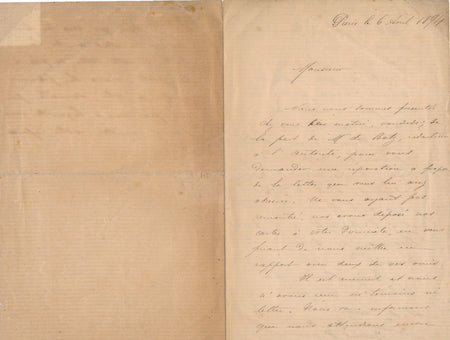 Paris le 6 Avril 1894
Monsieur
Nous nous sommes présentés
chez vous hier matin, vendredi, de
la part de Mr de Batz, rédacteur
à l'Autorité, pour vous
demander une réparation à propos
de la lettre que vous lui avez
adressée. Ne vous ayant pas
rencontré, nous avons déposé nos
cartes à votre domicile en vous
priant de nous mettre en
rapport avec deux de vos amis.
Il est minuit et nous
n'avons reçu ni témoins ni
lettre. Nous vous informons
que nous attendrons encore